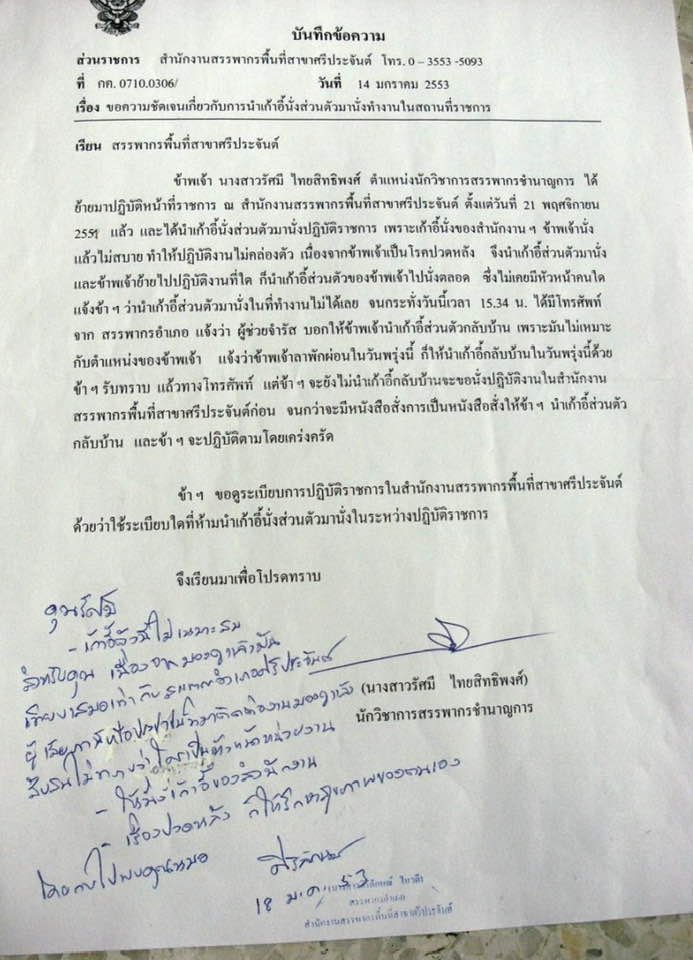 บันทึกข้อความ
ส่วนราชการ สำนักงานสรรพากรพื้นที่สาขาศรีประจันต์ โทร. 0 – 3553 -5093
ที่ กค. 0710.0306/ วันที่ 14 มกราคม 2553
เรื่อง ขอความชัดเจนเกี่ยวกับการนำเก้าอี้นั่งส่วนตัวมานั่งทำงานในสถานที่ราชการ
เรียน สรรพากรพื้นที่สาขาศรีประจันต์
ข้าพเจ้า นางสาวรัศมี ไทยสิทธิพงศ์ ตำแหน่งนักวิชาการสรรพากรชำนาญการ ได้
ย้ายมาปฏิบัติหน้าที่ราชการ ณ สำนักงานสรรพากรพื้นที่สาขาศรีประจันต์ ตั้งแต่วันที่ 21 พฤศจิกายน
2551 แล้ว และได้นำเก้าอี้นั่งส่วนตัวมานั่งปฏิบัติราชการ เพราะเก้าอี้นั่งของสำนักงาน ฯ ข้าพเจ้านั่ง
แล้วไม่สบาย ทำให้ปฏิบัติงานไม่คล่องตัว เนื่องจากข้าพเจ้าเป็นโรคปวดหลัง จึงนำเก้าอี้ส่วนตัวมานั่ง
และข้าพเจ้าย้ายไปปฏิบัติงานที่ใด ก็นำเก้าอี้ส่วนตัวของข้าพเจ้าไปนั่งตลอด ซึ่งไม่เคยมีหัวหน้าคนใด
แจ้งข้า ฯ ว่านำเก้าอี้ส่วนตัวมานั่งในที่ทำงานไม่ได้เลย จนกระทั่งวันนี้เวลา 15.34 น. ได้มีโทรศัพท์
จาก สรรพากรอำเภอ แจ้งว่า ผู้ช่วยจำรัส บอกให้ข้าพเจ้านำเก้าอี้ส่วนตัวกลับบ้าน เพราะมันไม่เหมาะ
กับตำแหน่งของข้าพเจ้า แจ้งว่าข้าพเจ้าลาพักผ่อนในวันพรุ่งนี้ ก็ให้นำเก้าอี้กลับบ้านในวันพรุ่งนี้ด้วย
ข้า ฯ รับทราบ แล้วทางโทรศัพท์ แต่ข้า ฯ จะยังไม่นำเก้าอี้กลับบ้านจะขอนั่งปฏิบัติงานในสำนักงาน
สรรพากรพื้นที่สาขาศรีประจันต์ก่อน จนกว่าจะมีหนังสือสั่งการเป็นหนังสือสั่งให้ข้า ฯ นำเก้าอี้ส่วนตัว
กลับบ้าน และข้า ฯ จะปฏิบัติตามโดยเคร่งครัด
ข้า ฯ ขอดูระเบียบการปฏิบัติราชการในสำนักงานสรรพากรพื้นที่สาขาศรีประจันต์
ด้วยว่าใช้ระเบียบใดที่ห้ามนำเก้าอี้นั่งส่วนตัวมานั่งในระหว่างปฏิบัติราชการ
จึงเรียนมาเพื่อโปรดทราบ
(นางสาวรัศมี ไทยสิทธิพงศ์)
นักวิชาการสรรพากรชำนาญการ
คุณรัศมี
- เก้าอี้ตัวนี้ไม่เหมาะสม
สำหรับคุณ เนื่องจากมองดูแล้วมัน
เทียบเสมอเท่ากับสรรพากรอำเภอศรีประจันต์
ผู้เสียภาษีหรือประชาชนที่มาติดต่องานมองดูแล้ว
สับสนไม่ทราบว่าใครเป็นหัวหน้าหน่วยงาน
- ให้นั่งเก้าอี้ของสำนักงาน
เรื่องปวดหลัง ก็ให้รักษาสุขภาพของตนเอง
โดยกลับไปพบคุณหมอ
18 ม.ค. 53
สรรพากรอำเภอ
สำนักงานสรรพากรพื้นที่สาขาศรีประจันต์